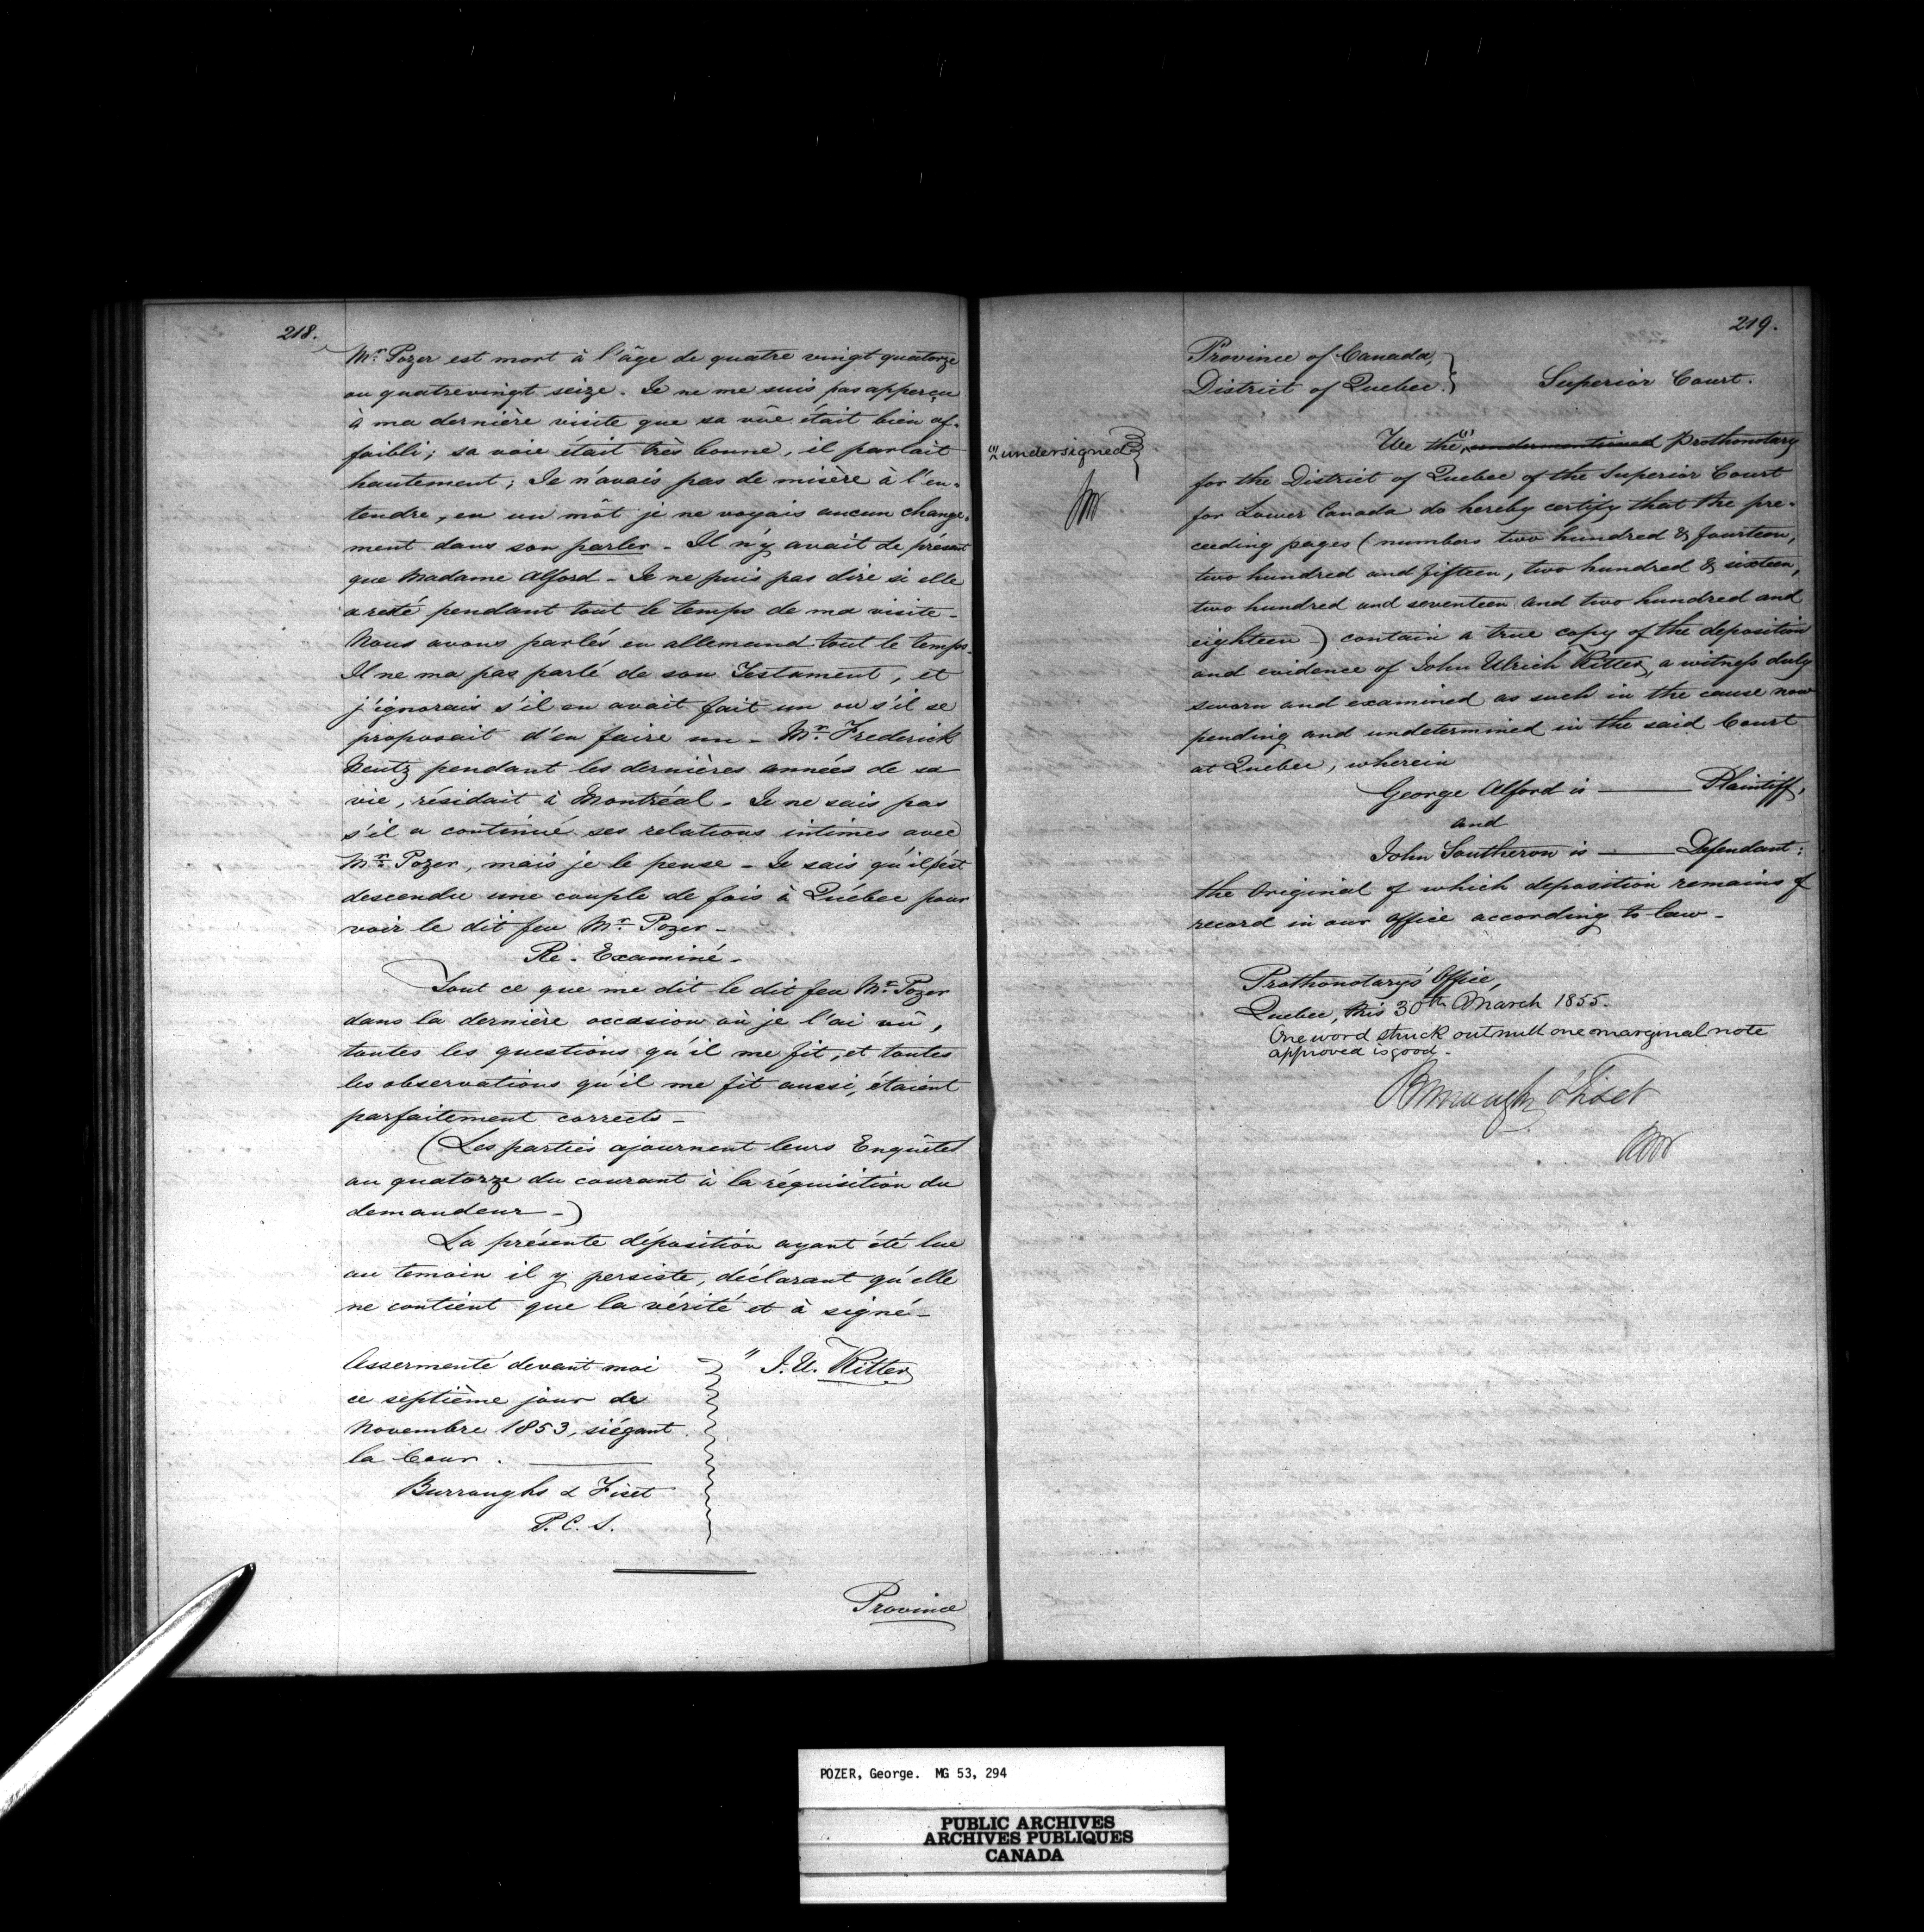 218.
Mr. Pozer est mort à l'âge de quatre vingt quatorze
ou quatrevingt seize. Je ne me suis pas apperçu
à ma dernière visite que sa vûe était bien af-
faibli; sa voie était très bonne, il parlait
hautement; Je n'avais pas de misère à l'en-
tendre, en un môt je ne voyais aucun change-
ment dans son parler - Il n'y avait de présent
que Madame Alford - Je ne puis pas dire si elle
a resté pendant tout le temps de ma visite -
Nous avons parlés en allemand tout le temps -
Il ne ma pas parlé de son Testament, et
j'ignorais s'il en avait fait un ou s'il se
proposait d'en faire un - Mr. Frederick
pendant les dernières années de sa
vie, résidait à Montréal - Je ne sais pas
s'il a continué ses relations intimes avec
Mr. Pozer, mais je le pense - Je sais qu'il s'est
descendu une couple de fois à Québec pour
voir le dit feu Mr. Pozer -
Ré-Examiné -
Tout ce que me dit le dit feu Mr. Pozer
dans la dernière occasion où je l'ai vû,
toutes les questions qu'il me fit, et toutes
les observations qu'il me fit aussi, étaient
parfaitement corrects -
(Les parties ajournent leurs Enquêtes
au quatorze du courant à la réquisition du
demandeur -)
La présente déposition ayant été lue
au temoin il y persiste, déclarant qu'elle
ne contient que la vérité et à signé -
Assermenté devant moi
ce septième jour de
Novembre 1853, siégant
la Cour.
" J. U. Ritter
Burroughs & Fiset
P. C. S.
Province
219.
Province of Canada,
District of Quebec.
Superior Court.
We the (1) undermentioned Prothonotary
(1) undersigned
for the District of Quebec of the Superior Court
for Lower Canada do hereby certify that the pre-
ceeding pages (numbers two hundred & fourteen,
two hundred and fifteen, two hundred & sixteen,
two hundred and seventeen and two hundred and
eighteen) contain a true copy of the deposition
and evidence of John Ulrich Ritter, a witness duly
sworn and examined as such in the cause now
pending and undetermined in the said Court
at Quebec, wherein
George Alford is Plaintiff,
and
John Southeron is Defendant:
the Original of which deposition remains of
record in our office according to law -
Prothonotary's Office,
Quebec, this 30th March 1855.
One word struck out null one marginal note
approved is good.
Burroughs & Fiset
POZER, George. MG 53, 294
PUBLIC ARCHIVES
ARCHIVES PUBLIQUES
CANADA